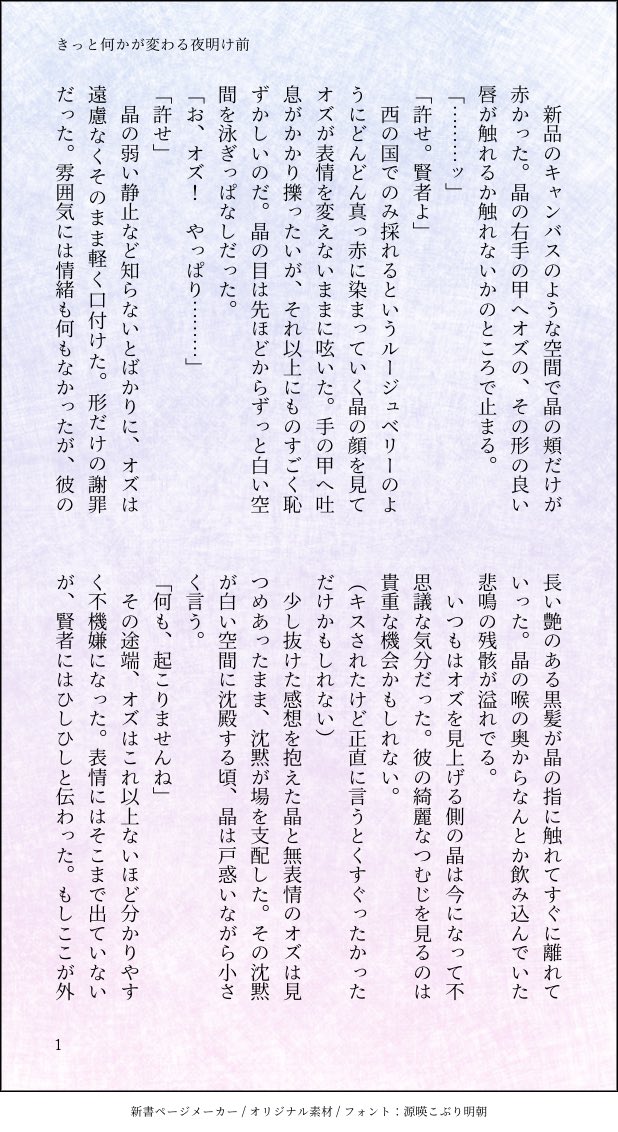 きっと何かが変わる夜明け前
　新品のキャンバスのような空間で晶の頬だけが
赤かった。晶の右手の甲へオズの、その形の良い
唇が触れるか触れないかのところで止まる。
「………ッ」
「許せ。賢者よ」
　西の国でのみ採れるというルージュベリーのよ
うにどんどん真っ赤に染まっていく晶の顔を見て
オズが表情を変えないままに呟いた。手の甲へ吐
息がかかり擽ったいが、それ以上にものすごく恥
ずかしいのだ。晶の目は先ほどからずっと白い空
間を泳ぎっぱなしだった。
「お、オズ！　やっぱり………」
「許せ」
　晶の弱い静止など知らないとばかりに、オズは
遠慮なくそのまま軽く口付けた。形だけの謝罪
だった。雰囲気には情緒も何もなかったが、彼の
長い艶のある黒髪が晶の指に触れてすぐに離れて
いった。晶の喉の奥からなんとか飲み込んでいた
悲鳴の残骸が溢れでる。
　いつもはオズを見上げる側の晶は今になって不
思議な気分だった。彼の綺麗なつむじを見るのは
貴重な機会かもしれない。
（キスされたけど正直に言うとくすぐったかった
だけかもしれない）
　少し抜けた感想を抱えた晶と無表情のオズは見
つめあったまま、沈黙が場を支配した。その沈黙
が白い空間に沈殿する頃、晶は戸惑いながら小さ
く言う。
「何も、起こりませんね」
　その途端、オズはこれ以上ないほど分かりやす
く不機嫌になった。表情にはそこまで出ていない
が、賢者にはひしひしと伝わった。もしここが外
1
新書ページメーカー / オリジナル素材 / フォント：源暎こぶり明朝